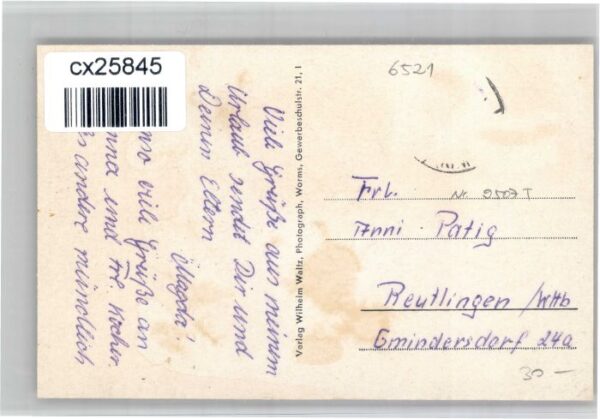 cx25845
6521
Viele Grüße aus meinem
Urlaub sendet Dir und
Deinen Eltern
Magda!
enso viele Grüße an
und Frl. Kocher
andere mündlich
Verlag Wilhelm Waltz, Photograph, Worms, Gewerbeschulstr. 21, I
Frl. Nr. 9507 T
Anni Patig
Reutlingen /Wttb
Gmindersdorf 24a
30 —